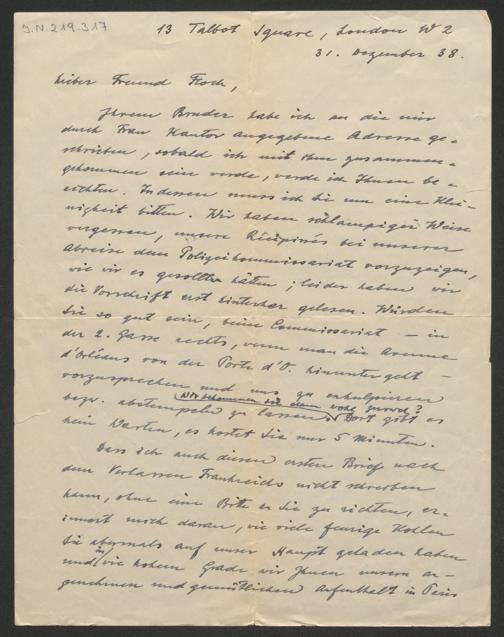 J.N. 219.317
13 Talbot Square, London W 2
31. Dezember 38.
Lieber Freund Floch,
Ihrem Bruder habe ich an die mir
durch Frau Kantor angegebene Adresse ge-
schrieben, sobald ich mit ihm zusammen-
gekommen sein werde, werde ich Ihnen be-
richten. Indessen muss ich Sie um eine Klei-
nigkeit bitten. Wir haben schlampiger Weise
vergessen, unsere Récipissés bei unserer
Abreise dem Polizeikommissariat vorzuzeigen,
wie wir es gesollt hätten; leider haben wir
die Vorschrift erst hinterher gelesen. Würden
Sie so gut sein, beim Commissariat – in
der 2. Gasse rechts, wenn man die Avenue
d'Orléans von der Porte d'O. hinunter geht –
vorzusprechen und uns zu exkulpieren
(Wir bekommen sie dann wohl zurück?
bezw. abstempeln zu lassen. Dort gibt es
kein Warten, es kostet Sie nur 5 Minuten.
Dass ich auch diesen ersten Brief nach
dem Verlassen Frankreichs nicht schreiben
kann, ohne eine Bitte an Sie zu richten, er-
innert mich daran, wie viele feurige Kohlen
Sie abermals auf unser Haupt geladen haben
und in wie hohem Grade wir Ihnen unsern an-
genehmen und gemütlichen Aufenthalt in Paris